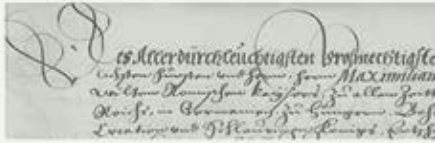 Des Allerdurchleuchtigisten Grosmechtigiste
ichsten Fürsten und Herrn, Herrn Maximilian
welten Römischen Kaysers, zu allen Zeitt
Reichs, in Germanien, zu Hungern, Beh
Croatien und Königs, Ertzh